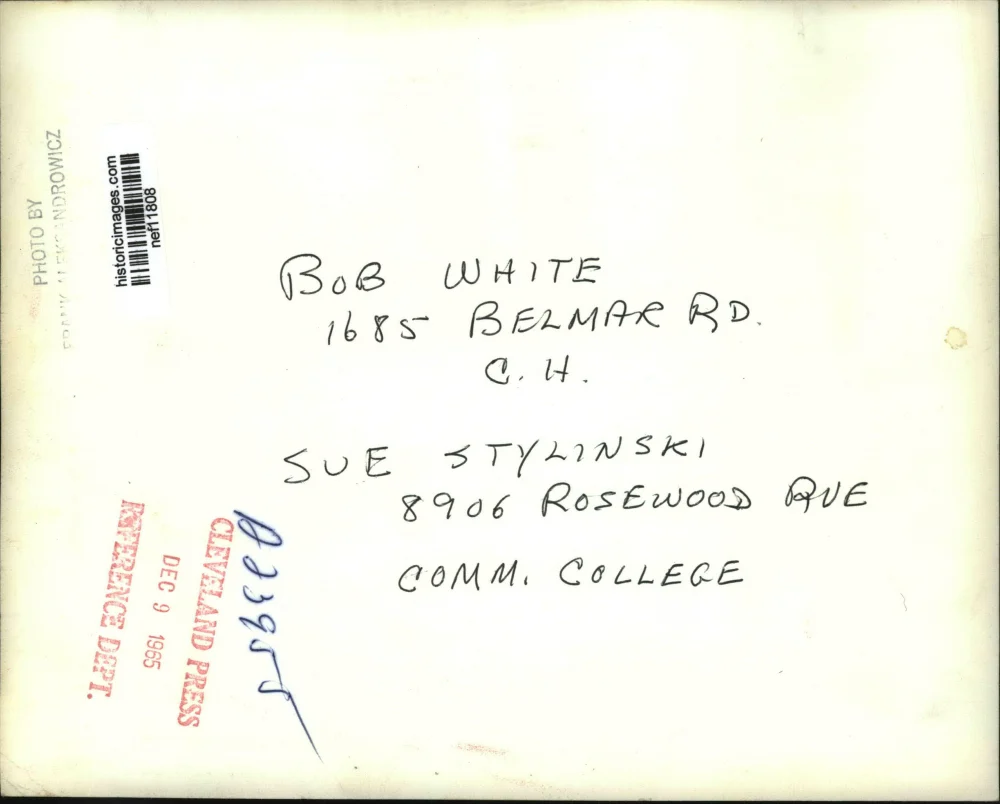 PHOTO BY
FRANK ALEKSANDROWICZ
historicimages.com
nef11808
BOB WHITE
1685 BELMAR RD.
C. H.
SUE STYLINSKI
8906 ROSEWOOD AVE
COMM. COLLEGE
CLEVELAND PRESS
DEC 9 1965
REFERENCE DEPT.